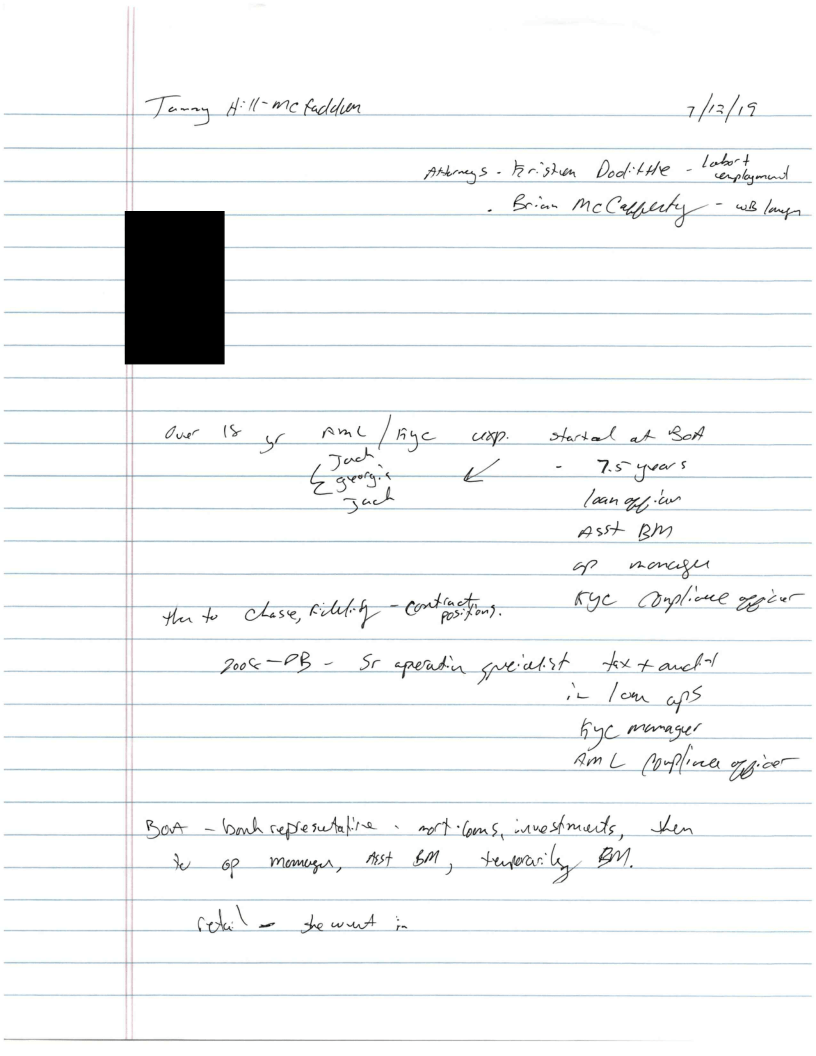 Tammy Hill-McFadden 7/12/19
Attorneys - Kristen Dolittle - labor + employment
. Brian McCafferty - WB lawyer
Over 18 yr AML / KYC exp. started at BoA
Jack - 7.5 years
georgia
Jack loan officer
Asst BM
op manager
KYC Compliance officer
then to Chase, Fidelity - contract positions.
DB - Sr operation specialist tax + audit
in loan ops
KYC manager
AML Compliance officer
BoA - bank representative - mort. loans, investments, then
to op manager, Asst BM, temporarily BM.
retail - she went in